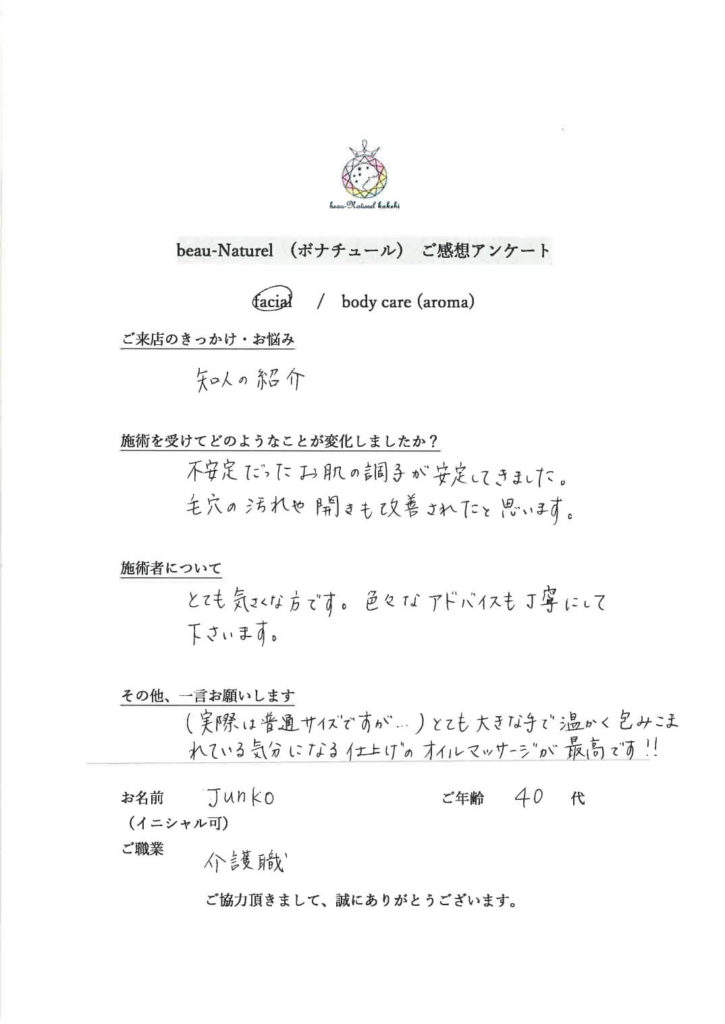 beau-Naturel kakehi
beau-Naturel （ボナチュール） ご感想アンケート
facial / body care (aroma)
ご来店のきっかけ・お悩み
知人の紹介
施術を受けてどのようなことが変化しましたか？
不安定だったお肌の調子が安定してきました。
毛穴の汚れや開きも改善されたと思います。
施術者について
とても気さくな方です。色々なアドバイスも丁寧にして
下さいます。
その他、一言お願いします
(実際は普通サイズですが…)とても大きな手で温かく包みこま
れている気分になる仕上げのオイルマッサージが最高です!!
お名前 Junko ご年齢 40 代
（イニシャル可）
ご職業 介護職
ご協力頂きまして、誠にありがとうございます。